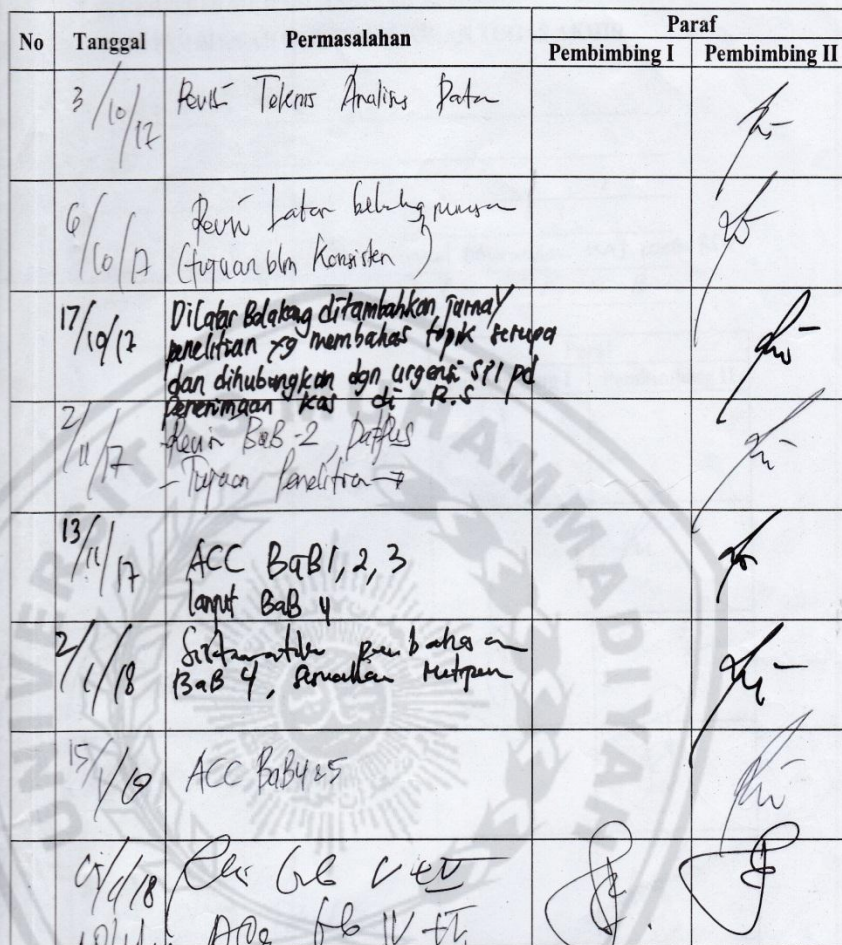 No Tanggal Permasalahan Paraf
Pembimbing I Pembimbing II
3/10/17 Revisi Teknis Analisis Data
6/10/17 Revisi Latar belakang
(tujuan blm Konsisten)
17/10/17 Dilatar Belakang ditambahkan jurnal
penelitian yg membahas topik serupa
dan dihubungkan dgn urgensi SPI pd
penerimaan kas di R.S
2/11/17 - Revisi BaB-2, Dafpus
- Tujuan Penelitian
13/11/17 ACC BaB 1, 2, 3
lanjut BaB 4
2/1/18 pembahasan
BaB 4, sesuaikan Metpen
15/1/18 ACC BaB 4 & 5
UNIVERSITAS MUHAMMADIYAH